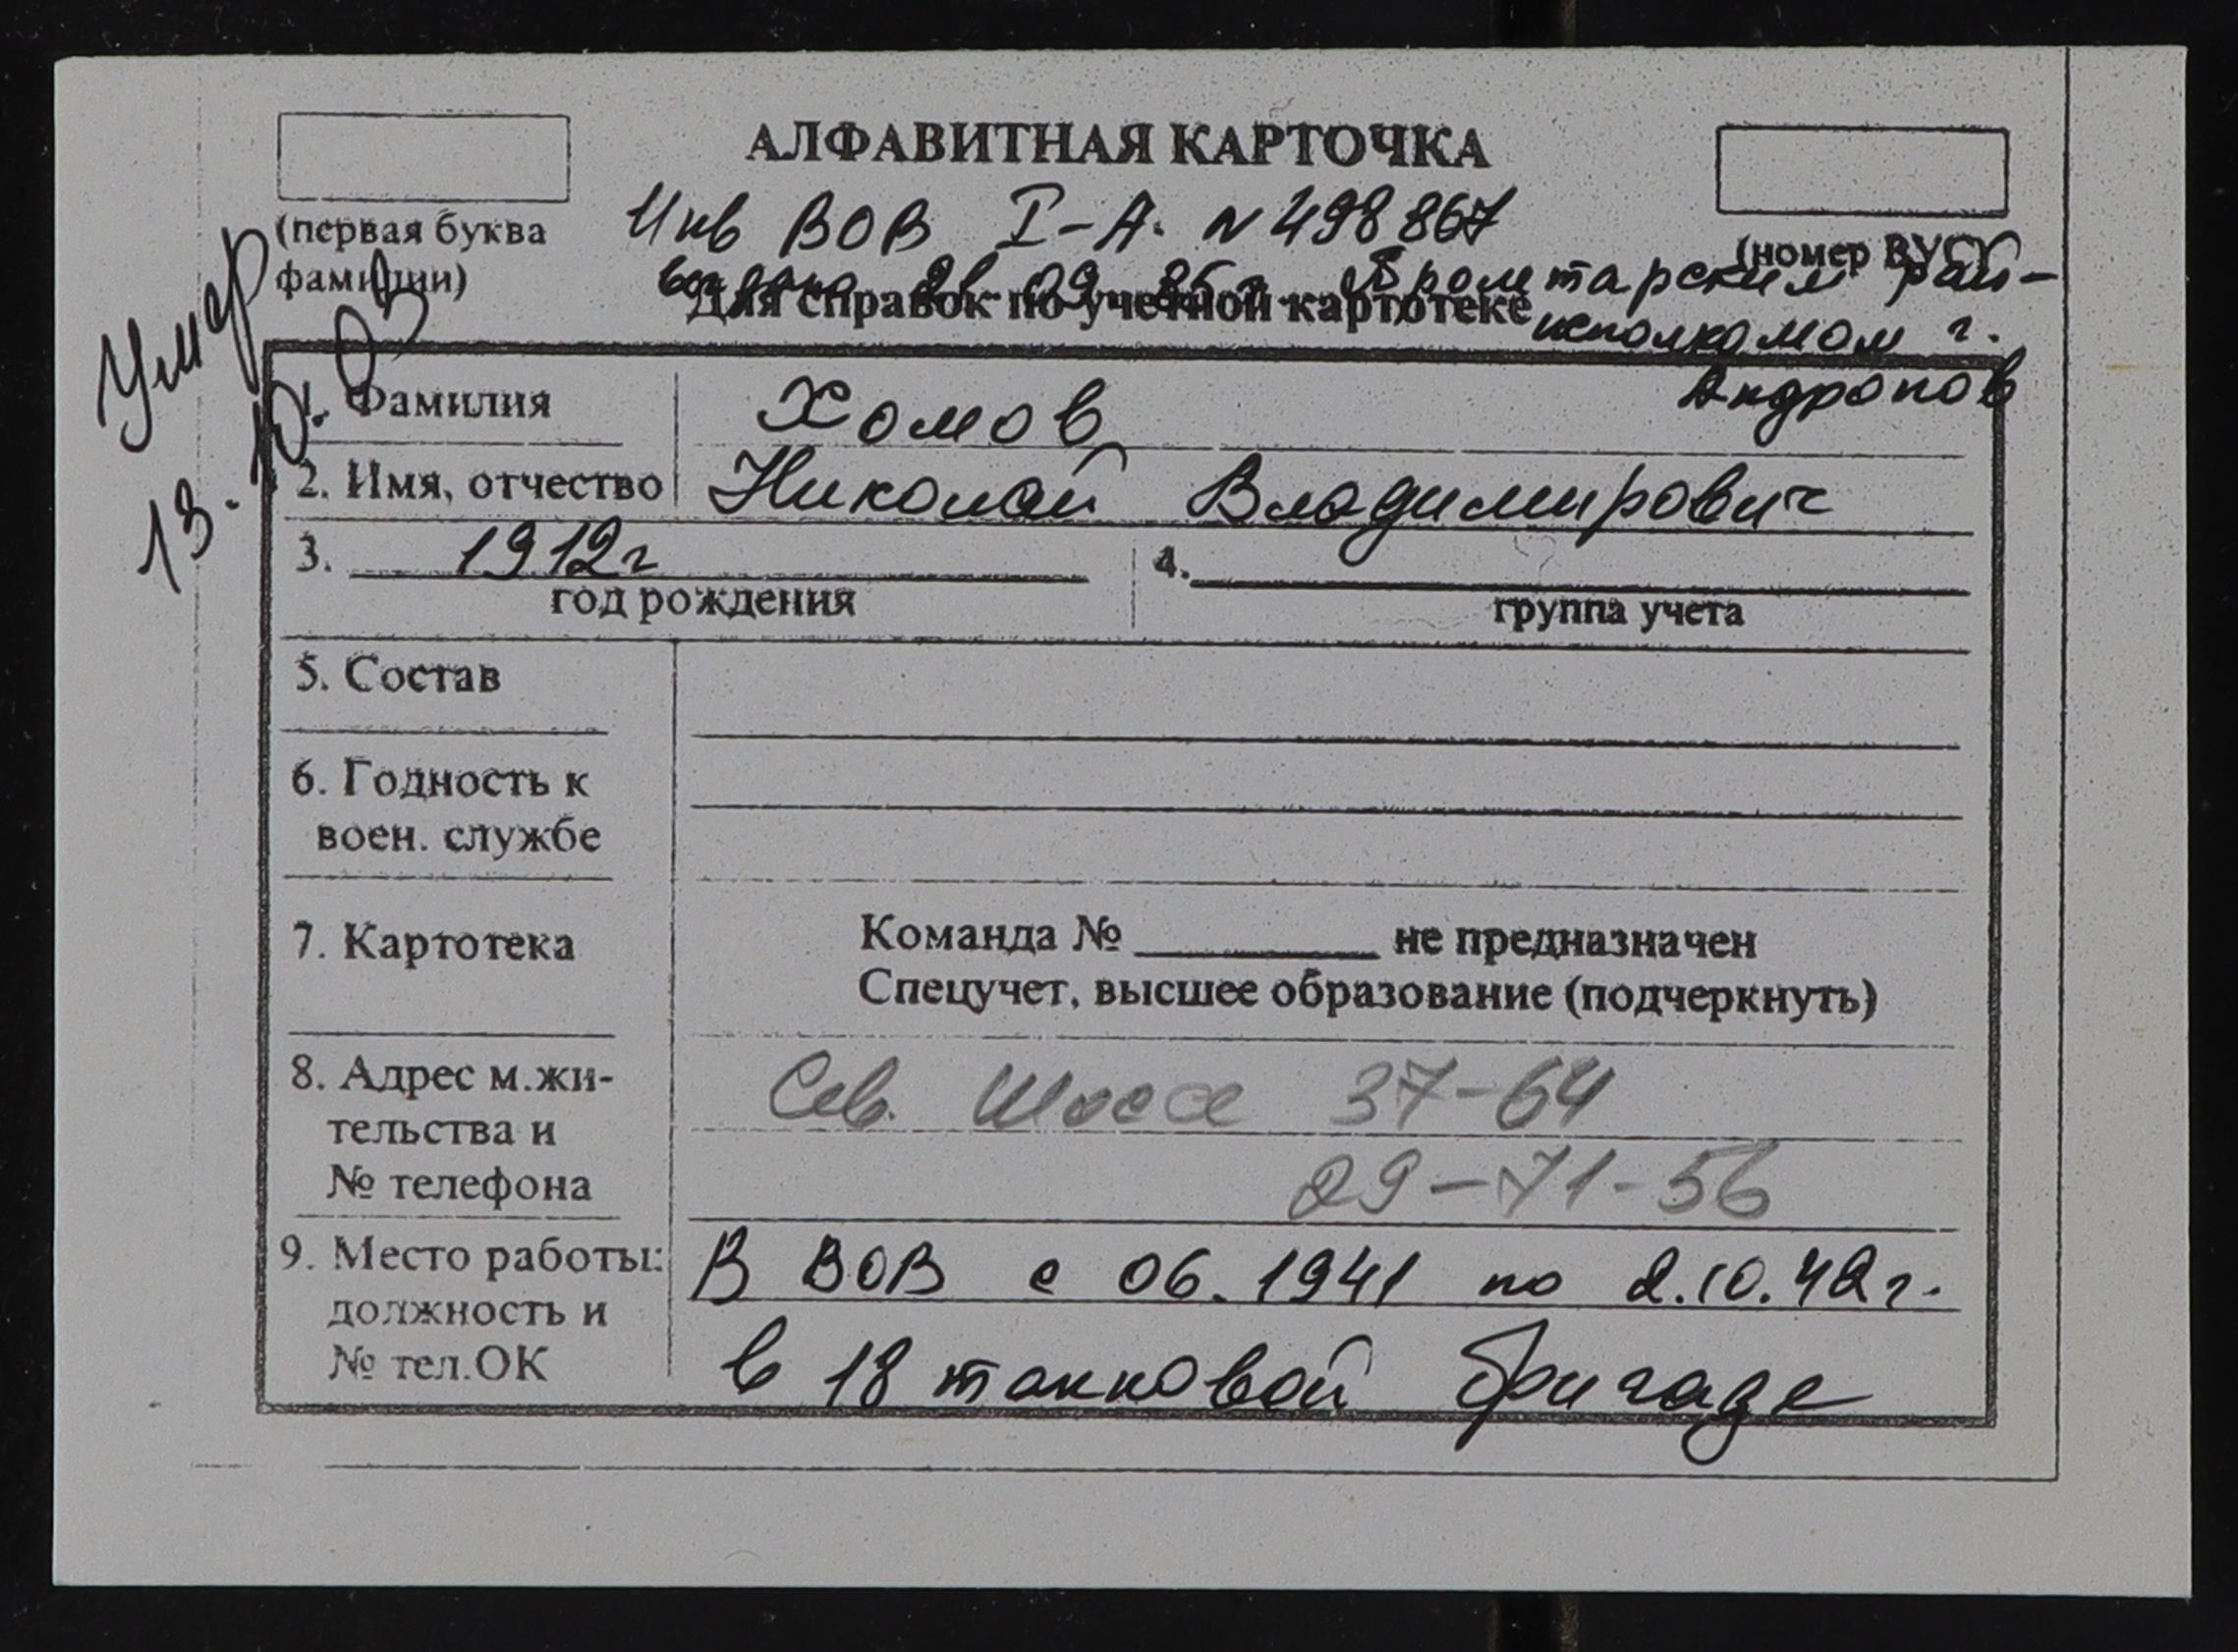 АЛФАВИТНАЯ КАРТОЧКА
(первая буква
фамилии)
(номер ВУС)
Инв ВОВ I-А. N 498867
09 86г. Пролетарским рай-
Для справок по учетной картотеке
исполкомом г.
Андропов
Умер
13.10.03
1. Фамилия Хомов
2. Имя, отчество Николай Владимирович
3. 1912г 4.
год рождения группа учета
5. Состав
6. Годность к
воен. службе
7. Картотека Команда № не предназначен
Спецучет, высшее образование (подчеркнуть)
8. Адрес м.жи- Сев. Шоссе 37-64
тельства и
№ телефона 29-71-56
9. Место работы: В ВОВ с 06.1941 по 2.10.42г.
должность и
№ тел.ОК в 18 танковой бригаде